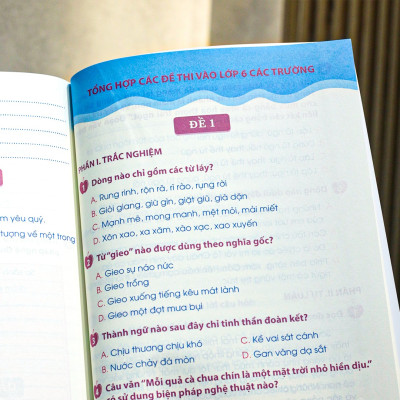 m yêu quý.
tượng về một trong
TỔNG HỢP CÁC ĐỀ THI VÀO LỚP 6 CÁC TRƯỜNG
ĐỀ 1
PHẦN I. TRẮC NGHIỆM
1 Dòng nào chỉ gồm các từ láy?
A. Rung rinh, rộn rã, rì rào, rụng rời
B. Giỏi giang, giữ gìn, giặt giũ, giả dận
C. Mạnh mẽ, mong manh, mệt mỏi, mải miết
D. Xôn xao, xa xăm, xào xạc, xao xuyến
2 Từ "gieo" nào được dùng theo nghĩa gốc?
A. Gieo sự náo nức
B. Gieo trồng
C. Gieo xuống tiếng kêu mát lành
D. Gieo một đợt mưa bụi
3 Thành ngữ nào sau đây chỉ tinh thần đoàn kết?
A. Chịu thương chịu khó
C. Kề vai sát cánh
B. Nước chảy đá mòn
D. Gan vàng dạ sắt
4 Câu văn "Mỗi quả cà chua chín là một mặt trời nhỏ hiền dịu."
có sử dụng biện pháp nghệ thuật nào?